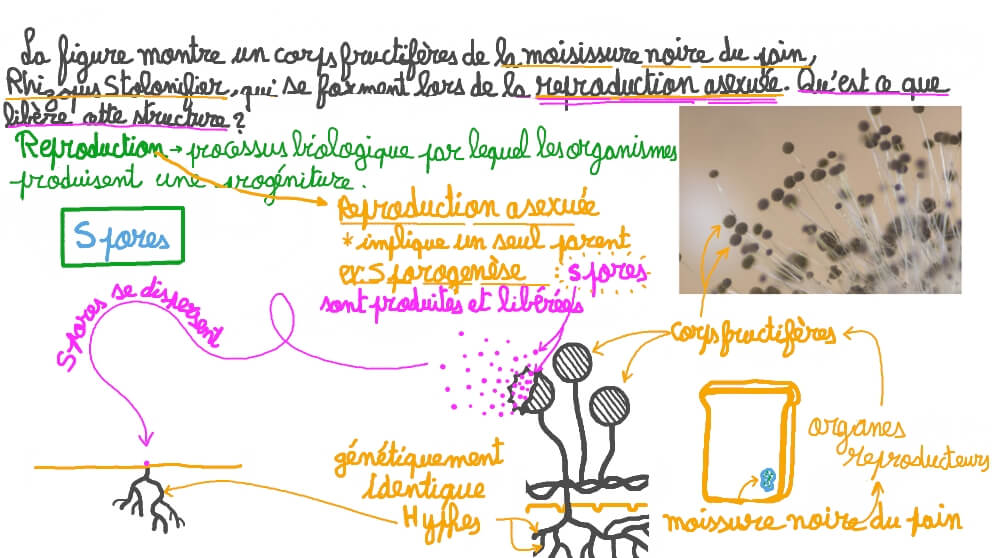 La figure montre un corps fructifères de la moisissure noire du pain,
Rhizopus Stolonifier, qui se forment lors de la reproduction asexuée. Qu'est ce que
libère cette structure ?
Reproduction → processus biologique par lequel les organismes
produisent une progéniture.
Spores
Reproduction asexuée
* implique un seul parent
ex: Sporogenèse : spores
sont produites et libérées
Spores se dispersent
corps fructifères
organes
reproducteurs
moissure noire du pain
génétiquement
identique
Hyphes